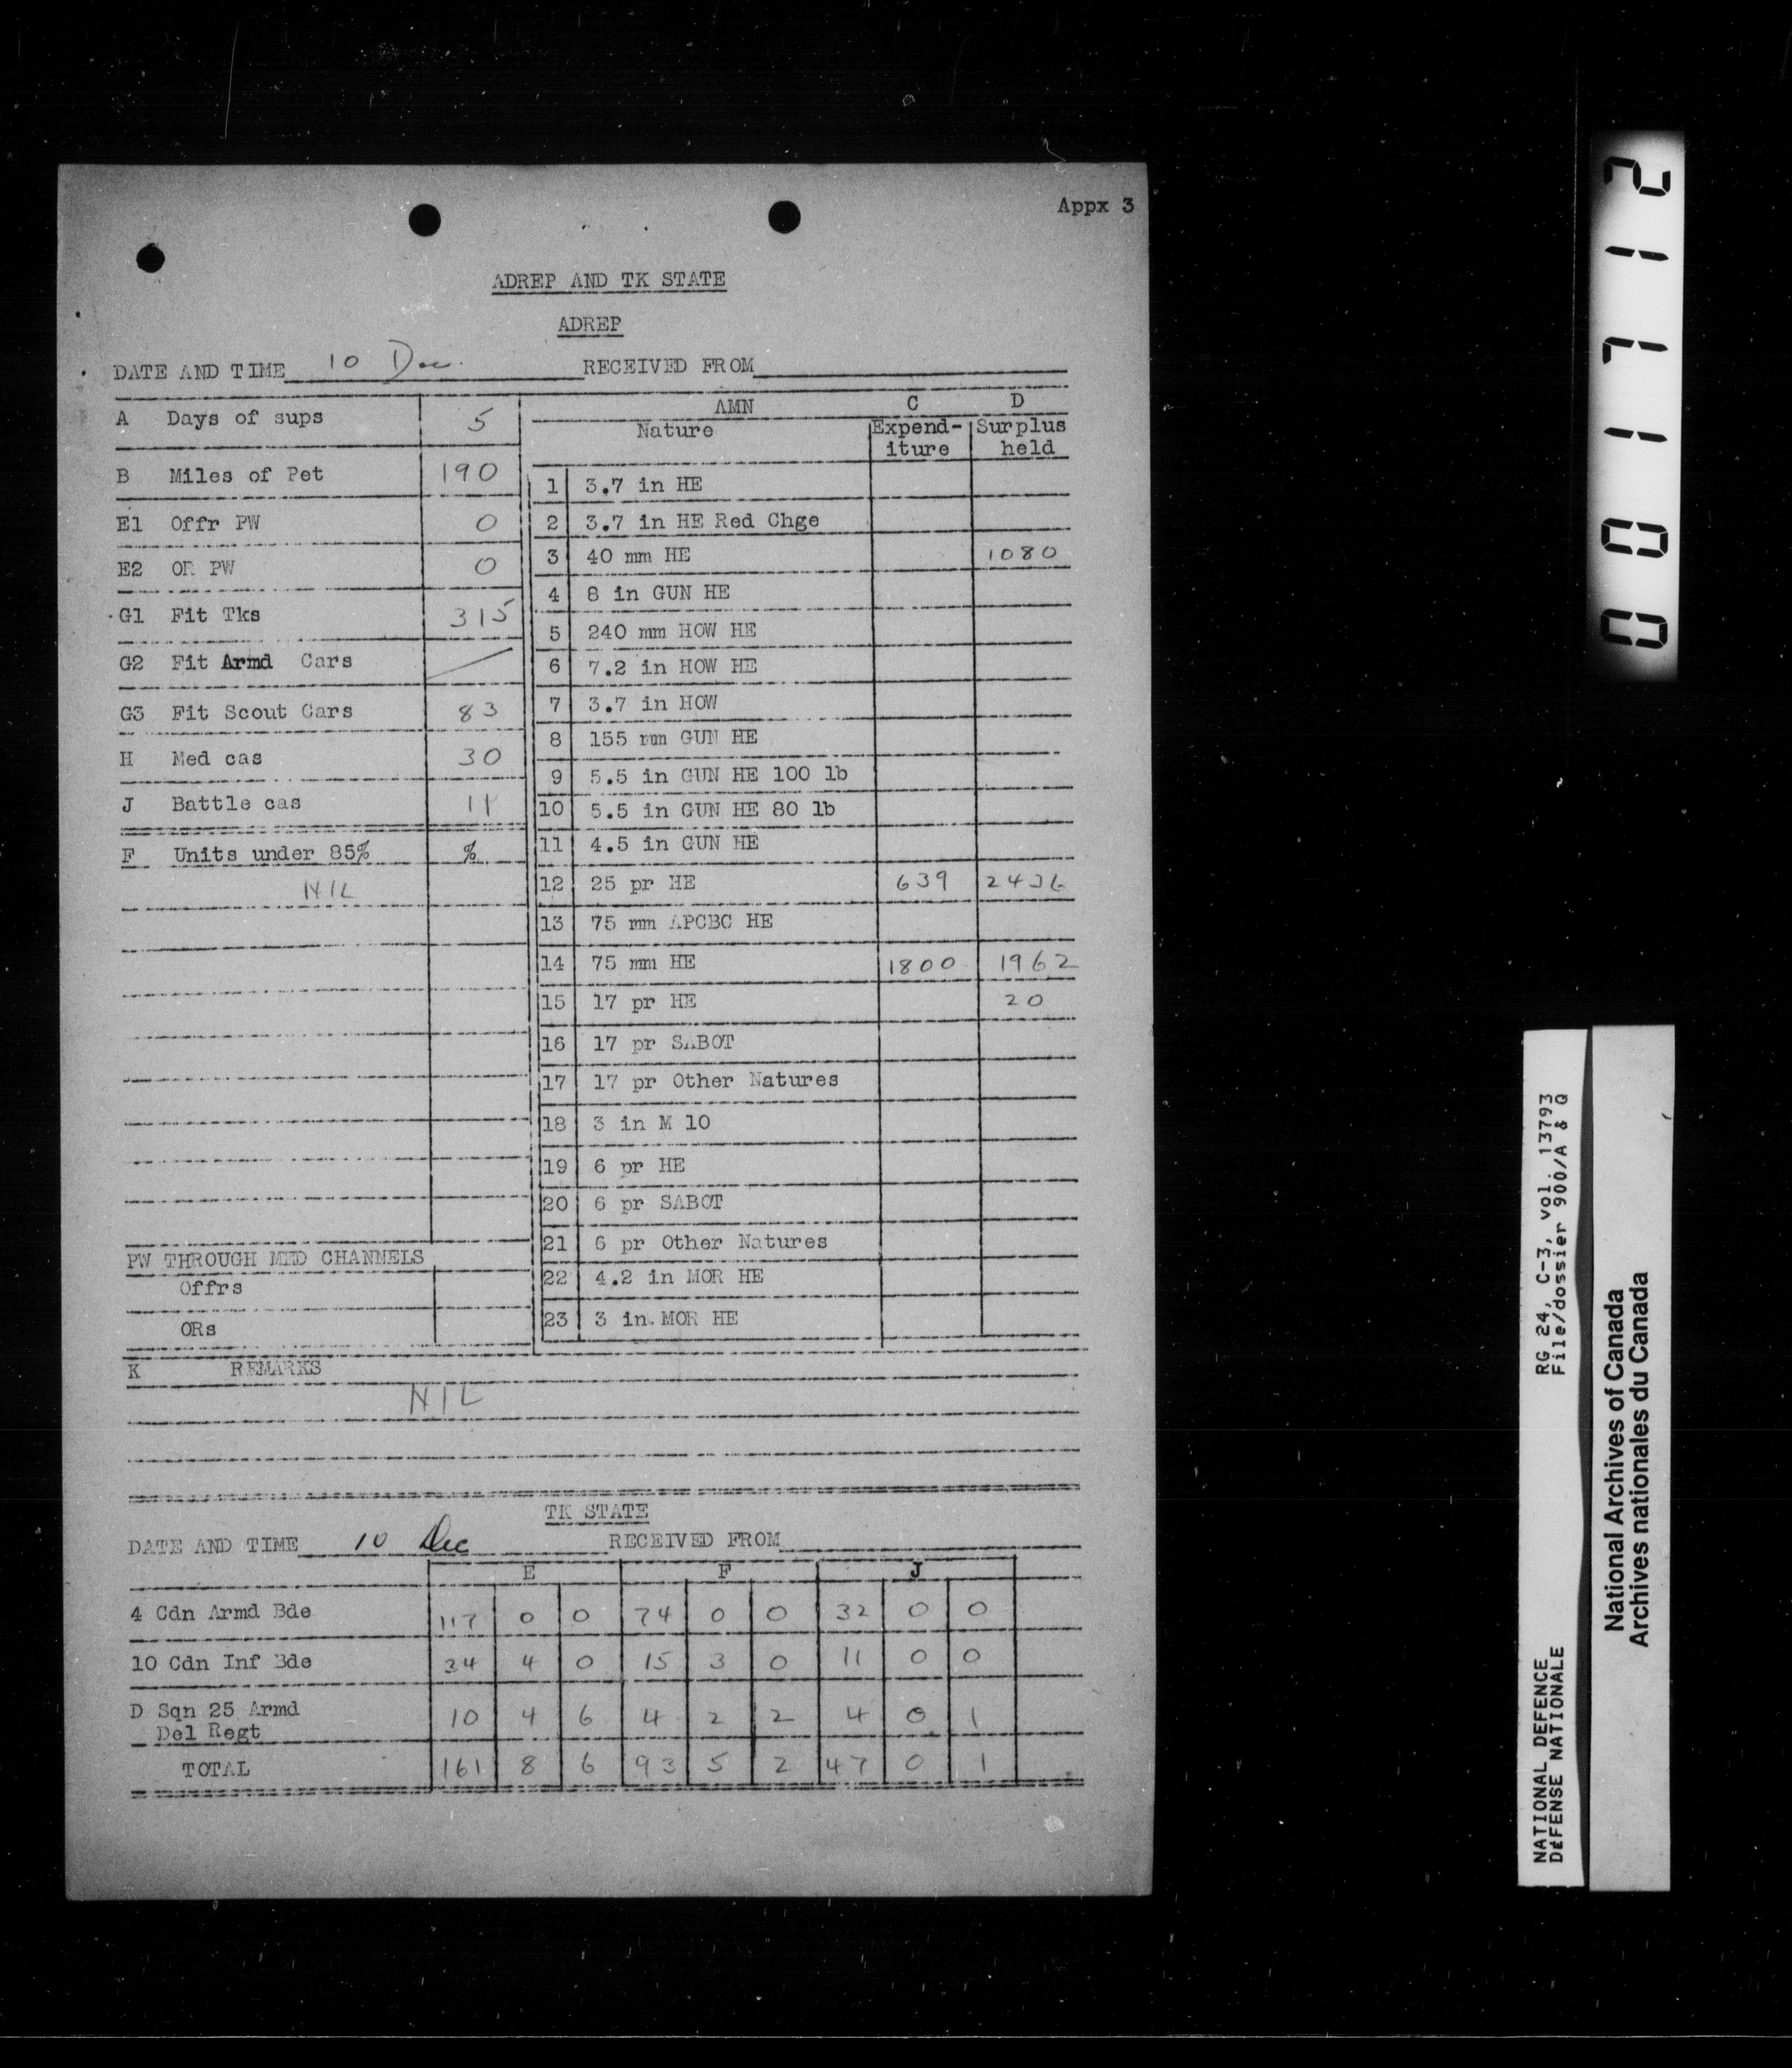 Appx 3
ADREP AND TK STATE
ADREP
DATE AND TIME 10 Dec. RECEIVED FROM
A Days of sups 5
B Miles of Pet 190
E1 Offr PW 0
E2 OR PW 0
G1 Fit Tks 315
G2 Fit Armd Cars
G3 Fit Scout Cars 83
H Med cas 30
J Battle cas 11
F Units under 85% %
NIL
PW THROUGH MED CHANNELS
Offrs
ORs
AMN C D
Nature Expend- Surplus
iture held
1 3.7 in HE
2 3.7 in HE Red Chge
3 40 mm HE 1080
4 8 in GUN HE
5 240 mm HOW HE
6 7.2 in HOW HE
7 3.7 in HOW
8 155 mm GUN HE
9 5.5 in GUN HE 100 lb
10 5.5 in GUN HE 80 lb
11 4.5 in GUN HE
12 25 pr HE 639
13 75 mm APCBC HE
14 75 mm HE 1800 1962
15 17 pr HE 20
16 17 pr SABOT
17 17 pr Other Natures
18 3 in M 10
19 6 pr HE
20 6 pr SABOT
21 6 pr Other Natures
22 4.2 in MOR HE
23 3 in MOR HE
K REMARKS
NIL
TK STATE
DATE AND TIME 10 Dec RECEIVED FROM
E F J
4 Cdn Armd Bde 117 0 0 74 0 0 32 0 0
10 Cdn Inf Bde 34 4 0 15 3 0 11 0 0
D Sqn 25 Armd 10 4 6 4 2 2 4 0 1
Del Regt
TOTAL 161 8 6 93 5 2 47 0 1
001712
NATIONAL DEFENCE RG 24, C-3, vol. 13793
DÉFENSE NATIONALE File/dossier 900/A & Q
National Archives of Canada
Archives nationales du Canada